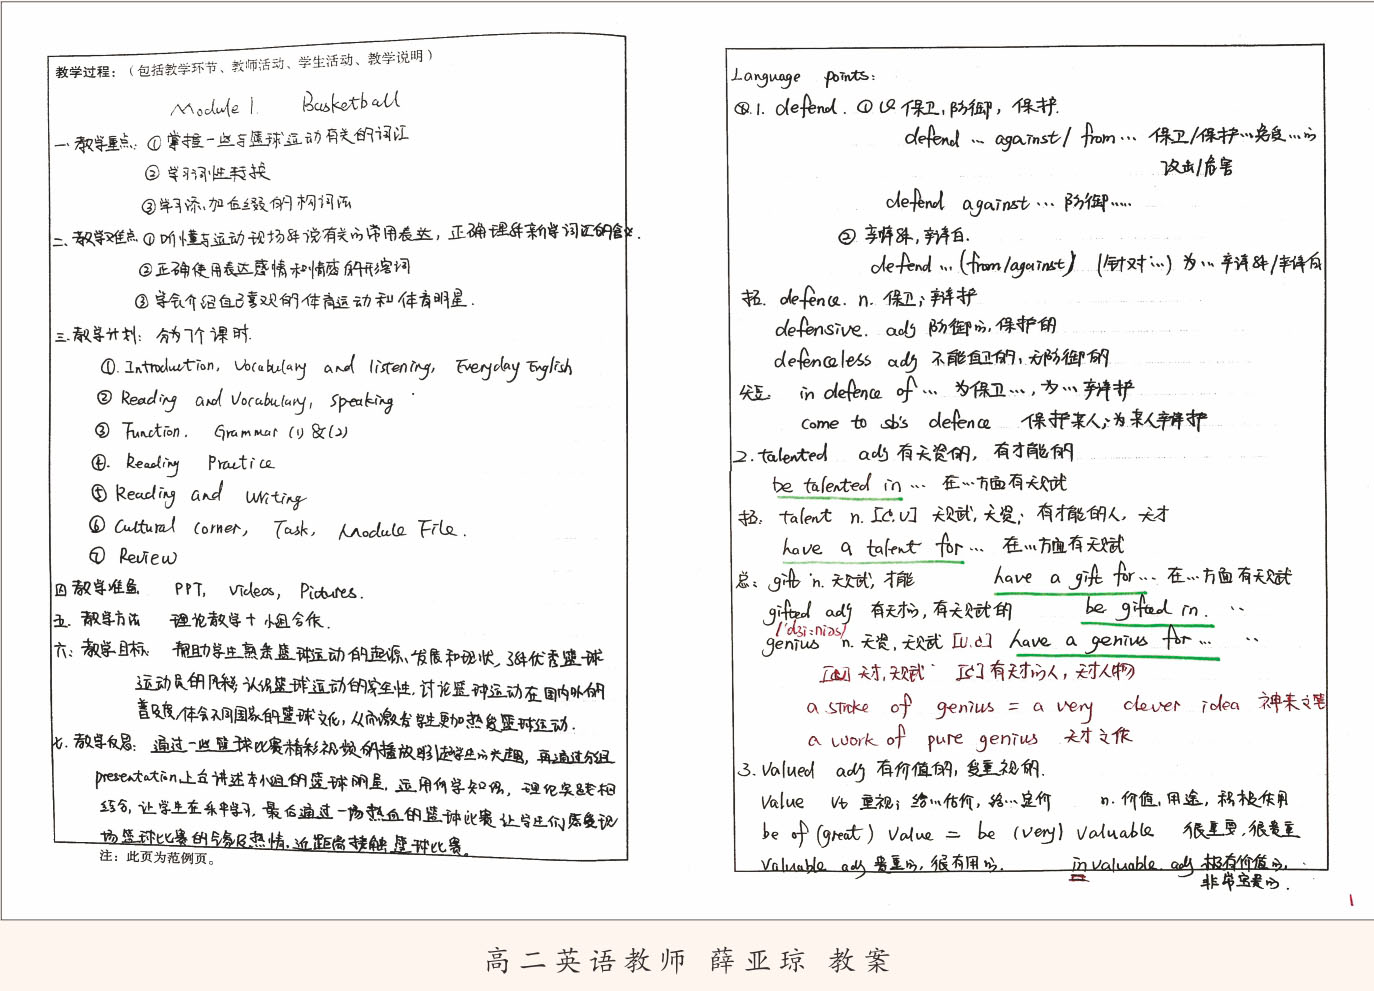 教学过程:（包括教学环节、教师活动、学生活动、教学说明）
Module 1. Basketball
一.教学重点: ①掌握一些与篮球运动有关的词汇
②学习词性转换
③学习添加后缀的构词法
二、教学难点 ①听懂与运动现场解说有关的常用表达，正确理解新学词汇的含义.
②正确使用表达感情和情感的形容词
③学会介绍自己喜欢的体育运动和体育明星.
三.教学计划: 分为7个课时.
①. Introduction, Vocabulary and listening, Everyday English
② Reading and Vocabulary, speaking
③ Function. Grammar (1) & (2)
④. Reading Practice
⑤ Reading and Writing
⑥ Cultural corner, Task, Module File.
⑦ Review
四 教学准备 PPT, Videos, Pictures.
五. 教学方法 理论教学+小组合作.
六: 教学目标: 帮助学生熟悉篮球运动的起源、发展和现状，了解优秀篮球
运动员的风采，认识篮球运动的学生性，讨论篮球运动在国内外的
普及度，体会不同国家的篮球文化，从而激发学生更加热爱篮球运动.
七. 教学反思: 通过一些篮球比赛精彩视频的播放吸引起学生的兴趣，再通过分组
presentation上台讲述本小组的篮球明星，运用所学知识，理论实践相
结合，让学生在乐中学习，最后通过一场热血的篮球比赛让学生们感受现
场篮球比赛的气氛及热情，近距离接触篮球比赛。
注：此页为范例页。
Language points:
1. defend. ① vt 保卫,防御，保护.
defend … against/ from … 保卫/保护…免受…的
攻击/危害
defend against … 防御……
② 辩解,辩白.
defend … (from/against) (针对…) 为…辩解/辩白
拓. defence. n. 保卫；辩护
defensive. adj 防御的,保护的
defenceless adj 不能自卫的,无防御的
in defence of … 为保卫…，为…辩护
come to sb's defence 保护某人;为某人辩护
2. talented adj 有天资的，有才能的
be talented in … 在…方面有天赋
拓: talent n. [C,U] 天赋,天资；有才能的人，天才
have a talent for … 在…方面有天赋
总: gift n. 天赋, 才能 have a gift for … 在…方面有天赋
gifted adj 有天才的, 有天赋的 be gifted in. ‥
/'dʒi:niəs/
genius n. 天资, 天赋 [U,C] have a genius for … ‥
[U] 天才,天赋 [C] 有天才的人，天才人物
a stroke of genius = a very clever idea 神来之笔
a work of pure genius 天才之作
3. Valued adj 有价值的，受重视的.
Value vt 重视；给…估价，给…定价 n. 价值,用途，积极作用
be of (great) value = be (very) valuable 很重要,很贵重
Valuable adj 贵重的,很有用的. invaluable adj 极有价值的,
非常宝贵的.
1
高二英语教师 薛亚琼 教案